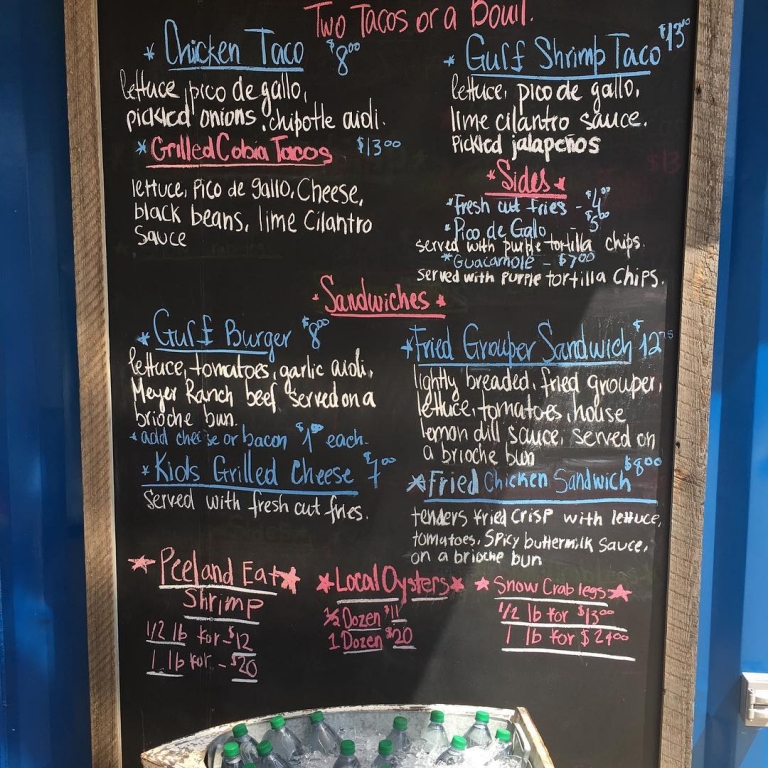 Two Tacos or a Bowl.
* Chicken Taco $8.00
lettuce, pico de gallo,
pickled onions, chipotle aioli.
* Grilled Cobia Tacos $13.00
lettuce, Pico de gallo, Cheese,
black beans, lime Cilantro
Sauce
* Gulf Shrimp Taco $13.00
lettuce, pico de gallo,
lime cilantro sauce.
Pickled jalapeños
* Sides *
* Fresh cut Fries - $4.00
* Pico de Galo - $5.00
served with purple tortilla chips.
* Guacamole - $7.00
served with purple tortilla chips.
* Sandwiches *
* Gulf Burger $8.00
lettuce, tomatoes, garlic aioli,
Meyer Ranch beef served on a
brioche bun.
* add cheese or bacon $1.00 each.
* Kids Grilled Cheese $7.00
Served with fresh cut fries.
* Fried Grouper Sandwich $12.75
lightly breaded, fried grouper,
lettuce, tomatoes, house
lemon dill sauce, served on
a brioche bun
* Fried Chicken Sandwich $8.00
tenders fried crisp with lettuce,
tomatoes, Spicy buttermilk sauce,
on a brioche bun
* Peel and Eat *
Shrimp
1/2 lb for $12
1 lb for - $20
* Local Oysters *
1/2 Dozen $11
1 Dozen $20
* Snow Crab legs *
1/2 lb for $13.00
1 lb for $24.00